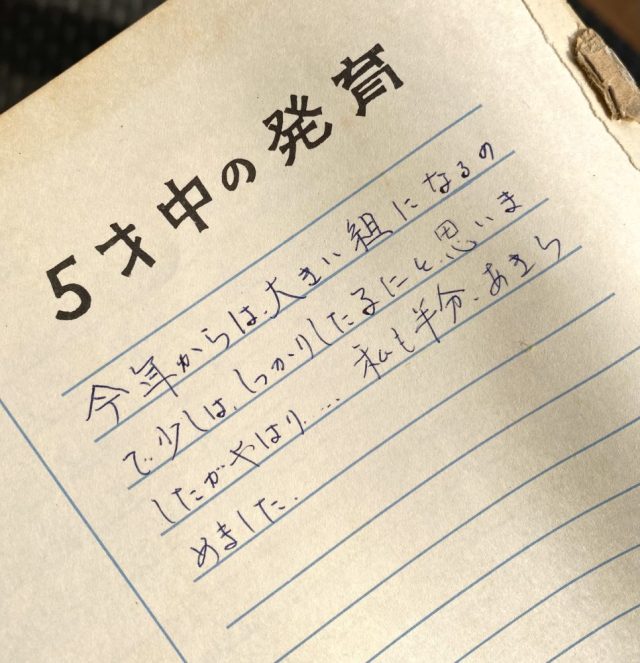 5才中の発育
今年からは、大きい組になるの
で少しは、しっかりしたるにと、思いま
したがやはり、… 私も半分、あきら
めました.